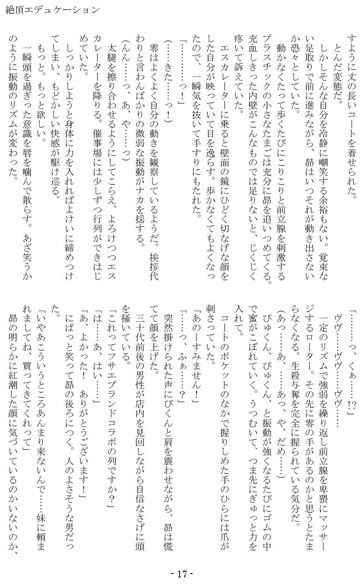 絶頂エデュケーション
すように丈の長いコートを着せられた。
とんだ変態だ。
しかしそんな自分を冷静に嘲笑する余裕もない。覚束な
い足取りで前に進みながら、昴はいつそれが動き出さない
か恐々としていた。
動かなくたって歩くたびにこりこりと前立腺を刺激する
プラスチックの小さなたまごは充分に昴を追いつめてくる。
充血しきった内壁がこんなものでは足りないと、じくじく
疼いて訴えていた。
エスカレーターに乗ると壁面の鏡にひどく切なげな顔を
した自分が映っていて目を逸らす。歩かなくてもよくなっ
たので、一瞬気を抜いて手すりにもたれた。
「……っ！」
（……きたっ……！）
零はよくよく自分の動きを観察しているようだ。挨拶代
わりと言わんばかりの微弱な振動がナカを揺する。
（んん……っ、あ、や……っ）
太腿を擦り合わせるようにしてこらえ、よろけつつエス
カレータを降りる。催事場には少しずつ行列ができはじ
めていた。
しっかりしようと身体に力を入れればよけいに締めつけ
てしまい、もどかしい快感が駆け巡る。
もっと。もっと欲しい。
一瞬頭を過ぎった意識を唇を噛んで散らす。あざ笑うか
のように振動のリズムが変わった。
「……っ、くぁ……っ!?」
ヴヴッ……ヴヴッ……ヴヴヴッ……
一定のリズムで強弱を繰り返し前立腺を卑猥にマッサー
ジするローター。その先に零の手があるのかと思うとたま
らなくなる。生殺与奪を完全に握られている気分だ。
（あっ……、あっ……あっ、や、だめ……っ）
びゅくん、びゅくん、と振動が強くなるたびにゴムの中
で蜜がこぼれていく。うつむいて、つま先にぎゅっと力を
入れて。
コートのポケットのなかで握りしめた手のひらには爪が
刺さっていた。
「あのーすみません！」
「……っ、……ぁ、っ！」
突然掛けられた声にびくんと肩を震わせながら、昴は慌
てて顔を上げた。
三十代前後の男性が店内を見回しながら自信なさげに頭
を掻いている。
「これってフサエブランドコラボの列ですか？」
「は……ぁ、はい……！」
「あーよかった！ありがとうございます！」
にぱっと笑って昴のうしろにつく。人のよさそうな男だっ
た。
「いやぁこういうところあんまり来ないんで……妹に頼ま
れましてね、買ってきてくれって」
昴の明らかに紅潮した顔に気づいているのかいないのか、
- 17 -